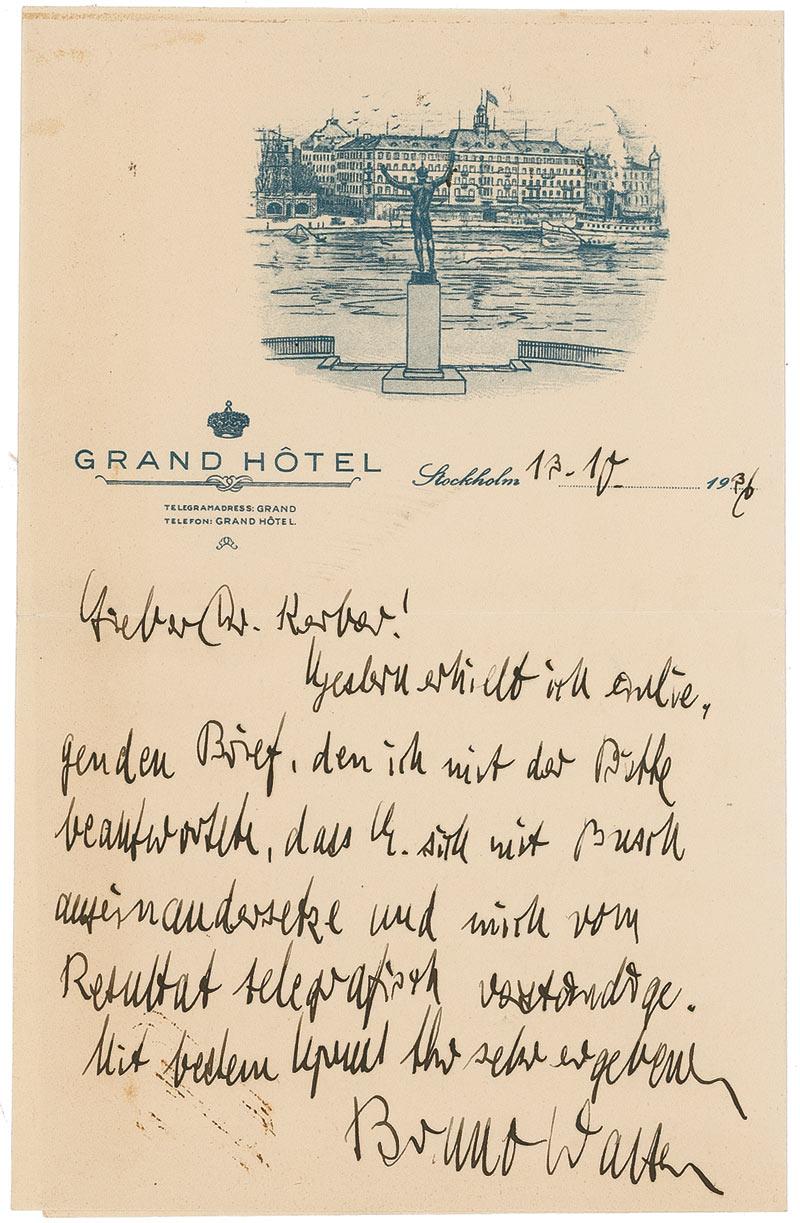 GRAND HÔTEL
TELEGRAMADRESS: GRAND
TELEFON: GRAND HÔTEL.
Stockholm 13.10 1936
Lieber Dr. Kerber!
Gestern erhielt ich einlie,
genden Brief, den ich mit der Bitte
beantwortete, dass G. sich mit Busch
auseinandersetze und mich vom
Resultat telegrafisch verständige.
Mit bestem Gruss Ihr sehr ergebener
Bruno Walter